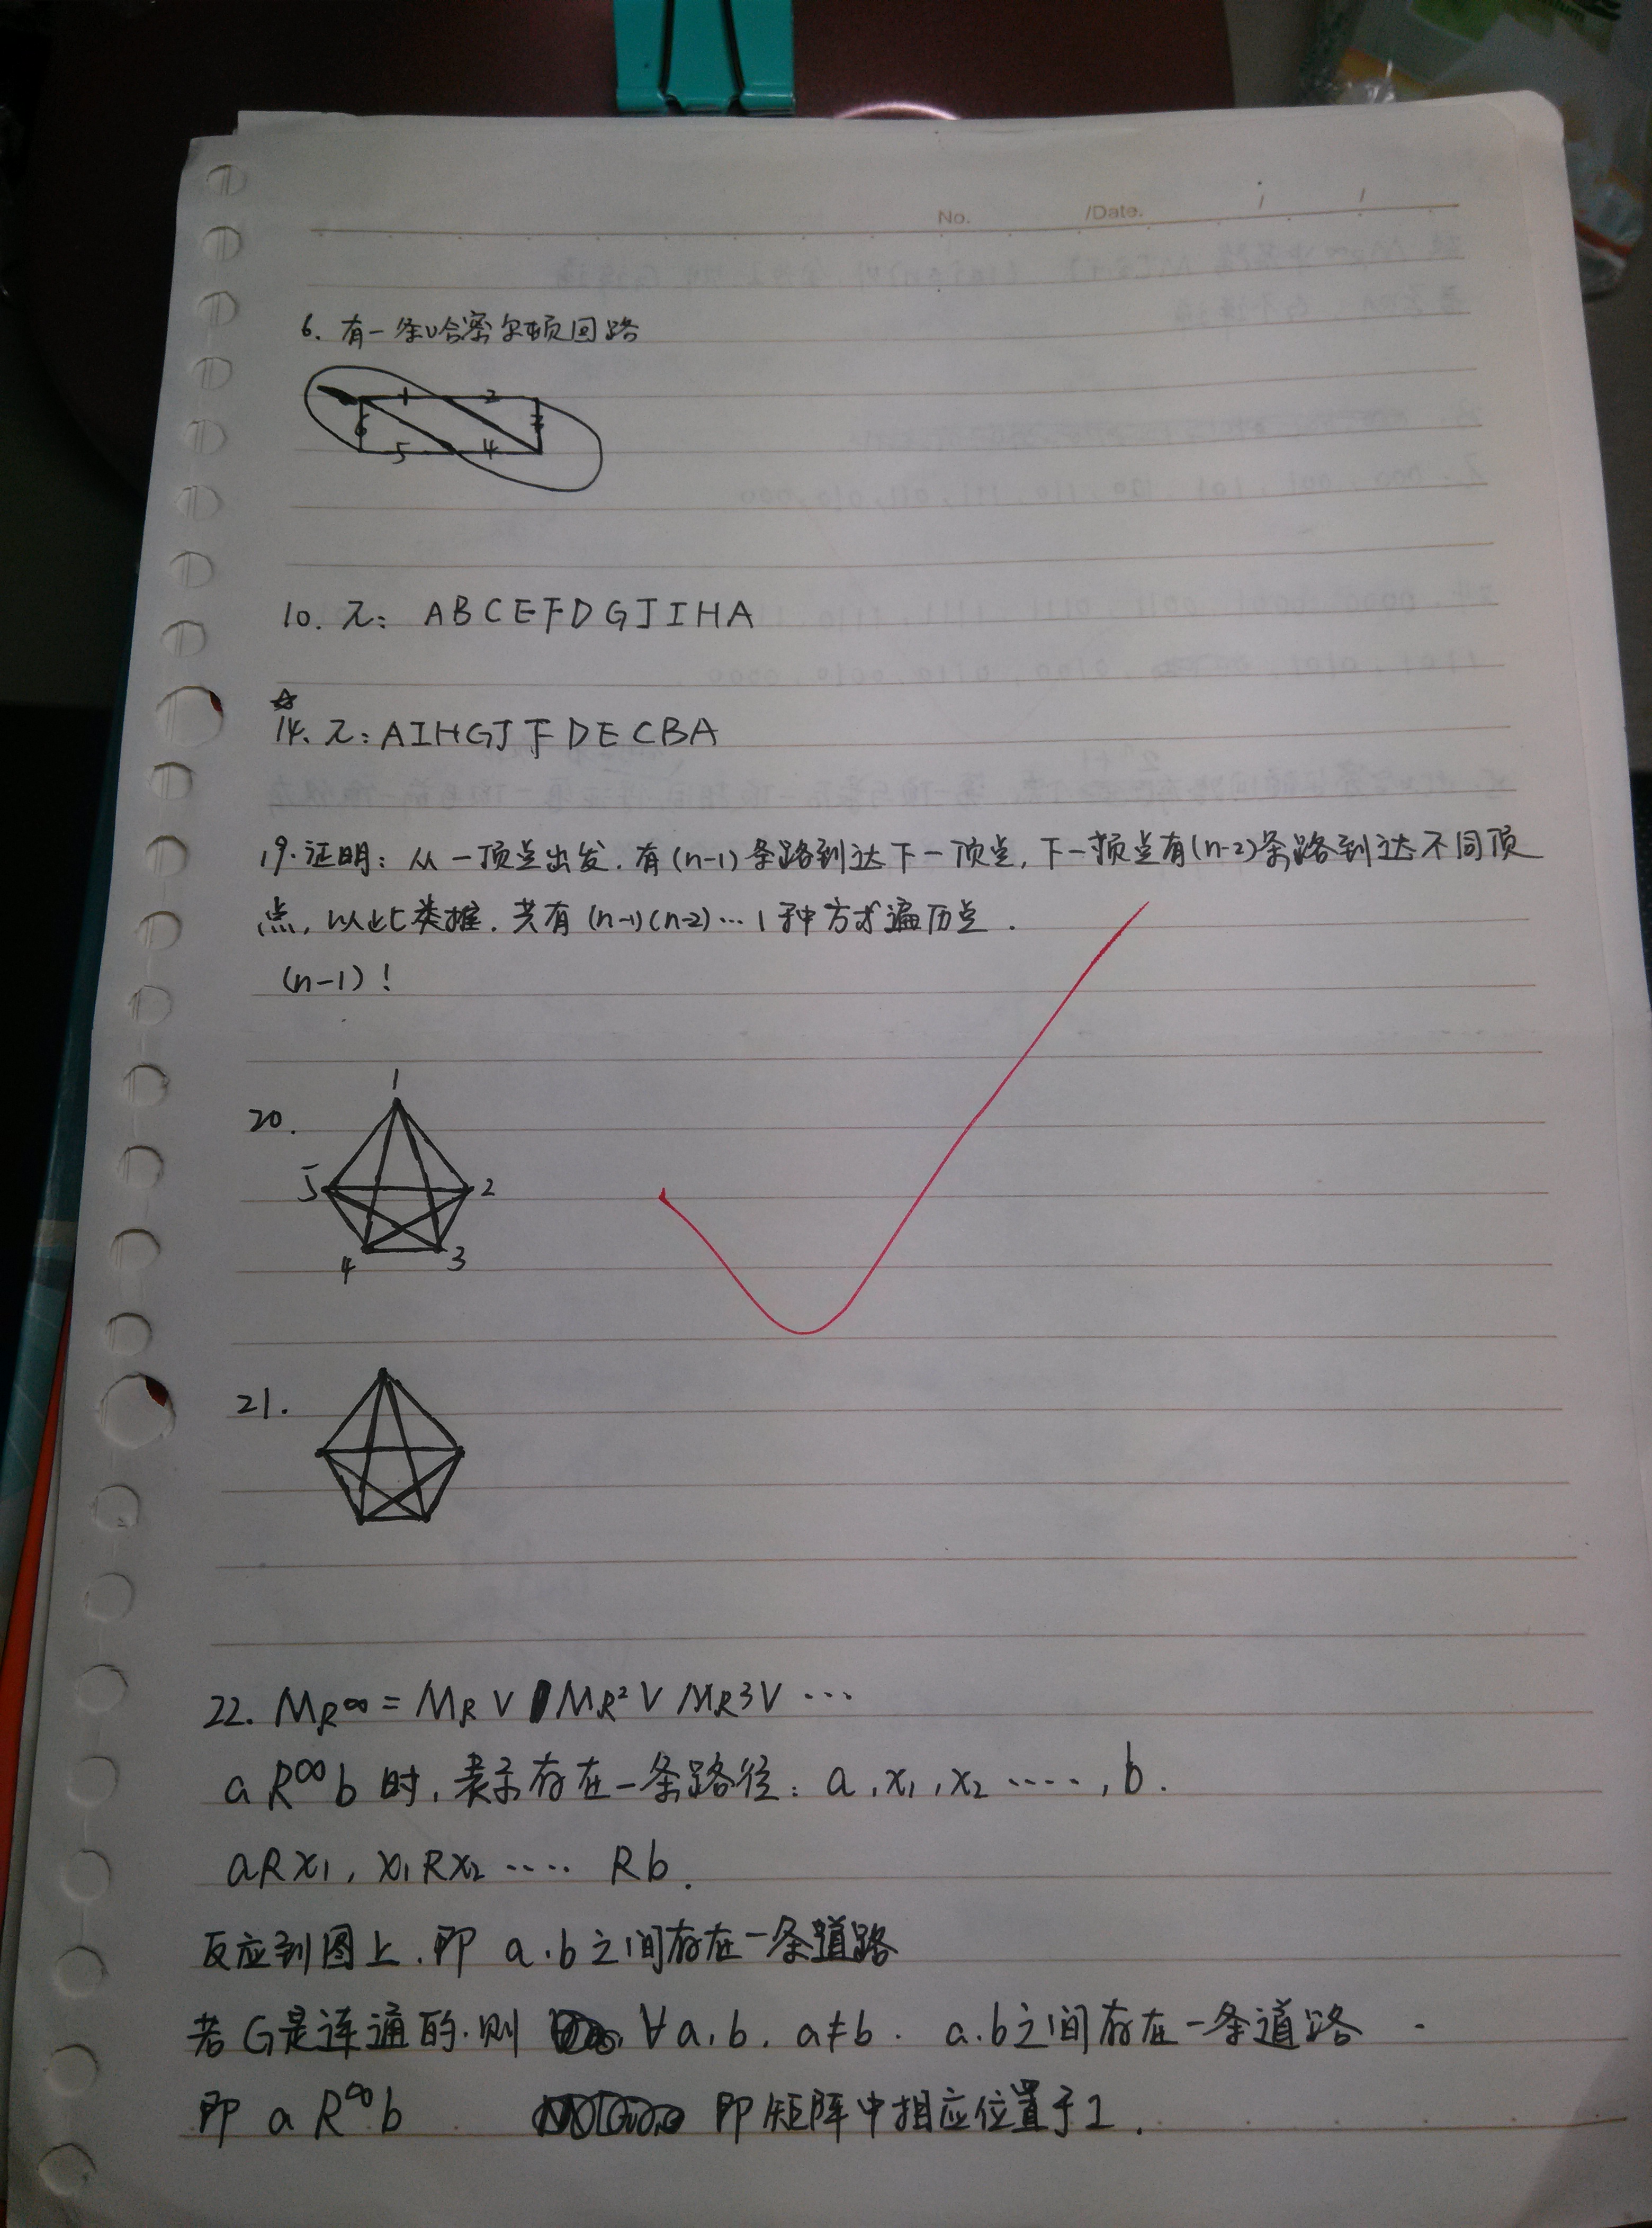 No. /Date. / /
6. 有一条哈密尔顿回路
1 2
6 3
5 4
10. π: ABCEFDGJIHA
☆
14. π: AIHGJFDECBA
19. 证明: 从一顶点出发. 有(n-1)条路到达下一顶点, 下一顶点有(n-2)条路到达不同顶
点, 以此类推. 共有 (n-1)(n-2)…1种方式遍历点.
(n-1)!
1
20.
5 2
4 3
21.
22. MR∞ = MR ∨ MR² ∨ MR3 ∨ …
a R∞ b 时, 表示存在一条路径: a, x₁, x₂ ‥‥, b.
aRx₁, x₁Rx₂ ‥‥ Rb.
反应到图上. 即 a.b之间存在一条道路
若G是连通的. 则 ∀a,b. a≠b. a.b之间存在一条道路.
即 a R∞ b 即矩阵中相应位置于1.